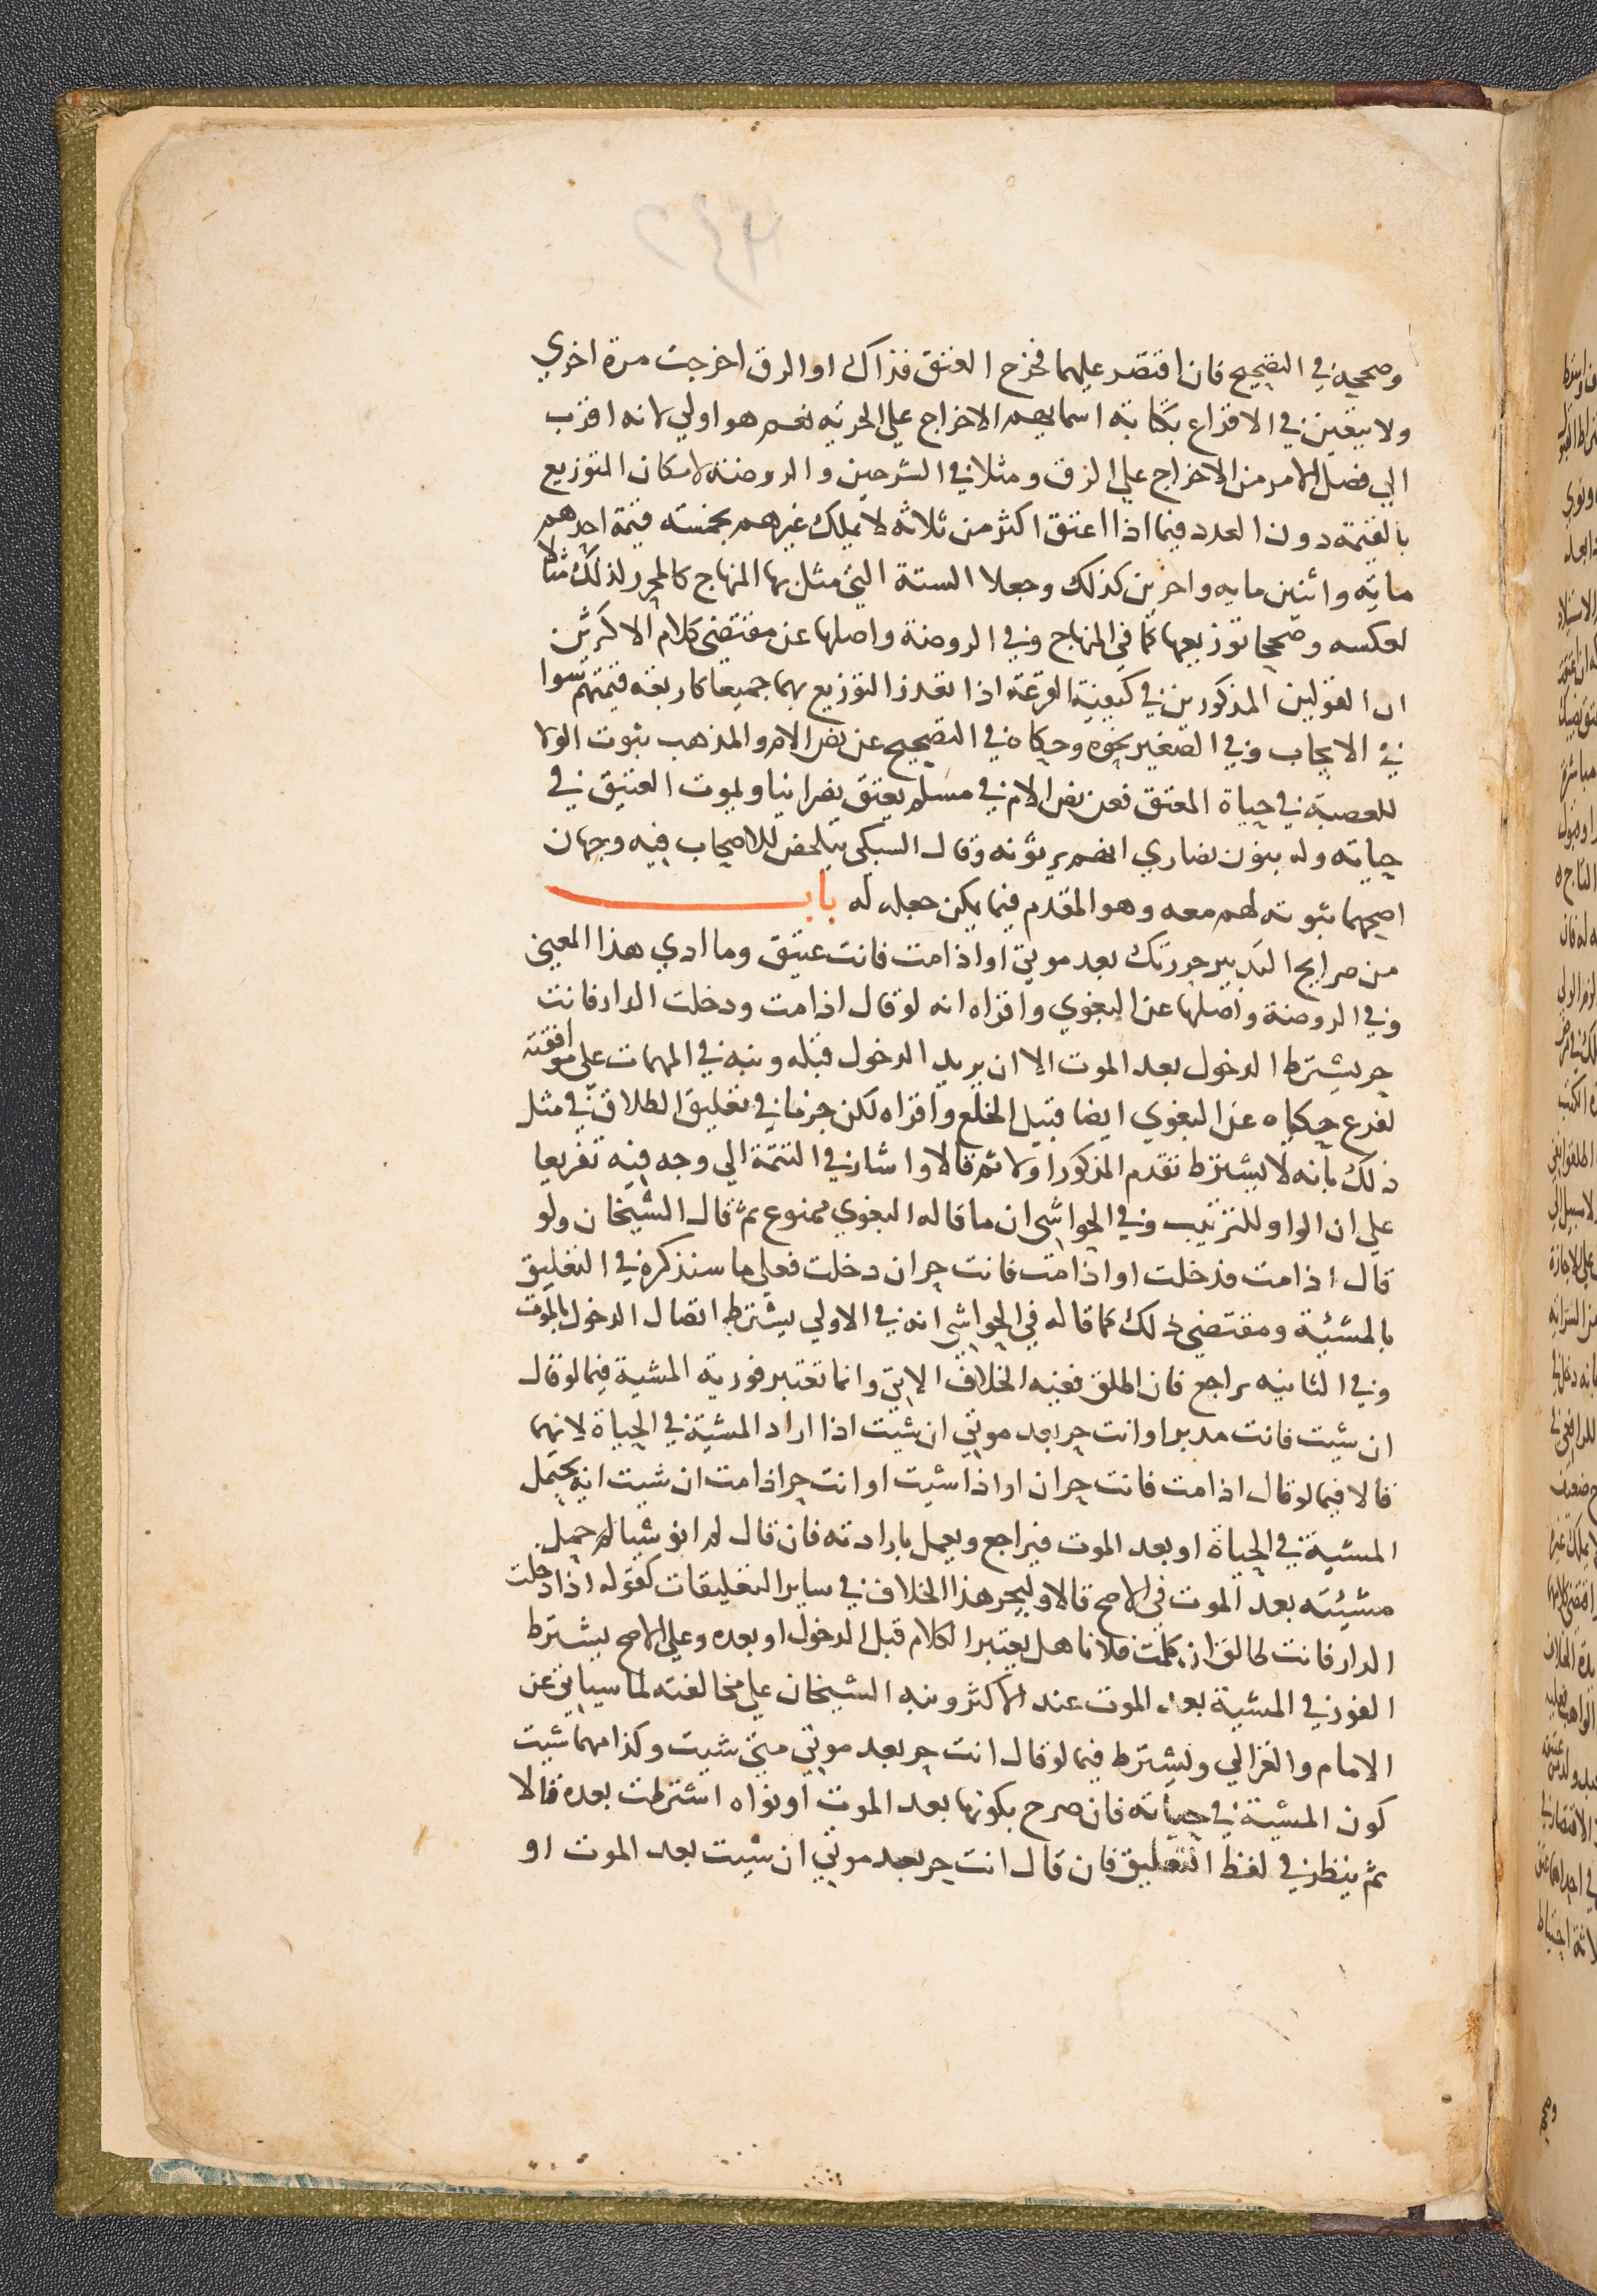 وصححه في التصحيح فان اقتصر عليهما فخرج العتق فذاك او الرق اخرجت مرة اخري
ولا يتعين في الاقراع بكتابة اسمايهم الاخراج علي الحرية نعم هو اولي لانه اقرب
الي فصل الامر من الاخراج علي الرق ومثلا في الشرحين والروضة لامكان التوزيع
بالقيمة دون العدد فيما اذا اعتق اكثر من ثلاثة لا يملك غيرهم بخمسة قيمة احدهم
ماية واثنين ماية واخرين كذلك وجعلا الستة التي مثل بها المنهاج كالمحرر لذلك مثالا
لعكسه وصححا توزيعها كما في المنهاج وفي الروضة واصلها عن مقتضي كلام الاكثرين
ان القولين المذكورين في كيفية القرعة اذا تعذر التوزيع بهما جميعا كاربعة قيمتهم سوا
في الايجاب وفي الصغير نحوه وحكاه في التصحيح عن نص الام والمذهب ثبوت الولا
للعصبة في حياة المعتق فعن نص الام في مسلم يعتق نصرانيا ويموت العتيق في
حياته وله بنون نصاري انهم يرثونه وقال السبكي يتلخص للاصحاب فيه وجهان
اصحهما ثبوته لهم معه وهو المقدم فيما يمكن جعله له باب
من صرايح التدبير حررتك بعد موتي او اذا مت فانت عتيق وما ادي هذا المعني
وفي الروضة واصلها عن البغوي واقراه انه لو قال اذا مت ودخلت الدار فانت
حر يشترط الدخول بعد الموت الا ان يريد الدخول قبله ونبه في المهمات علي موافقته
لفرع حكياه عن البغوي ايضا قبيل الخلع واقراه لكن جزما في تعليق الطلاق في مثل
ذلك بانه لا يشترط تقدم المذكور اولا ثم قالا واشار في التتمة الي وجه فيه تفريعا
علي ان الواو للترتيب وفي الحواشي ان ما قاله البغوي ممنوع ثم قال الشيخان ولو
قال اذا مت فدخلت او اذا مت فانت حر ان دخلت فعلي ما سنذكره في التعليق
بالمشيّة ومقتضي ذلك كما قاله في الحواشي انه في الاولي يشترط اتصال الدخول بالموت
وفي الثانيه يراجع فان اطلق ففيه الخلاف الاتي وانما تعتبر فورية المشية فيما لو قال
ان شيت فانت مدبر او انت حر بعد موتي ان شيت اذا اراد المشية في الحياة لانهما
قالا فيما لو قال اذا مت فانت حر ان او اذا شيت او انت حر اذا مت ان شيت انه يحتمل
المشية في الحياة او بعد الموت فيراجع ويعمل بارادته فان قال لم انو شيا لم حمل
مشيته بعد الموت في الاصح قالا وليجر هذا الخلاف في ساير التعليقات كقوله اذا دخلت
الدار فانت طالق ان كلمت فلانا هل يعتبر الكلام قبل الدخول او بعده وعلي الاصح يشترط
الفور في المشية بعد الموت عند الاكثر ونبه الشيخان علي مخالفته لما سياتي عن
الامام والغزالي ويشترط فيما لو قال انت حر بعد موتي متي شيت وكذا مهما شيت
كون المشية في حياته فان صرح بكونها بعد الموت او نواه اشترطت بعده قالا
ثم ينظر في لفظ التعليق فان قال انت حر بعد موتي ان شيت بعد الموت او